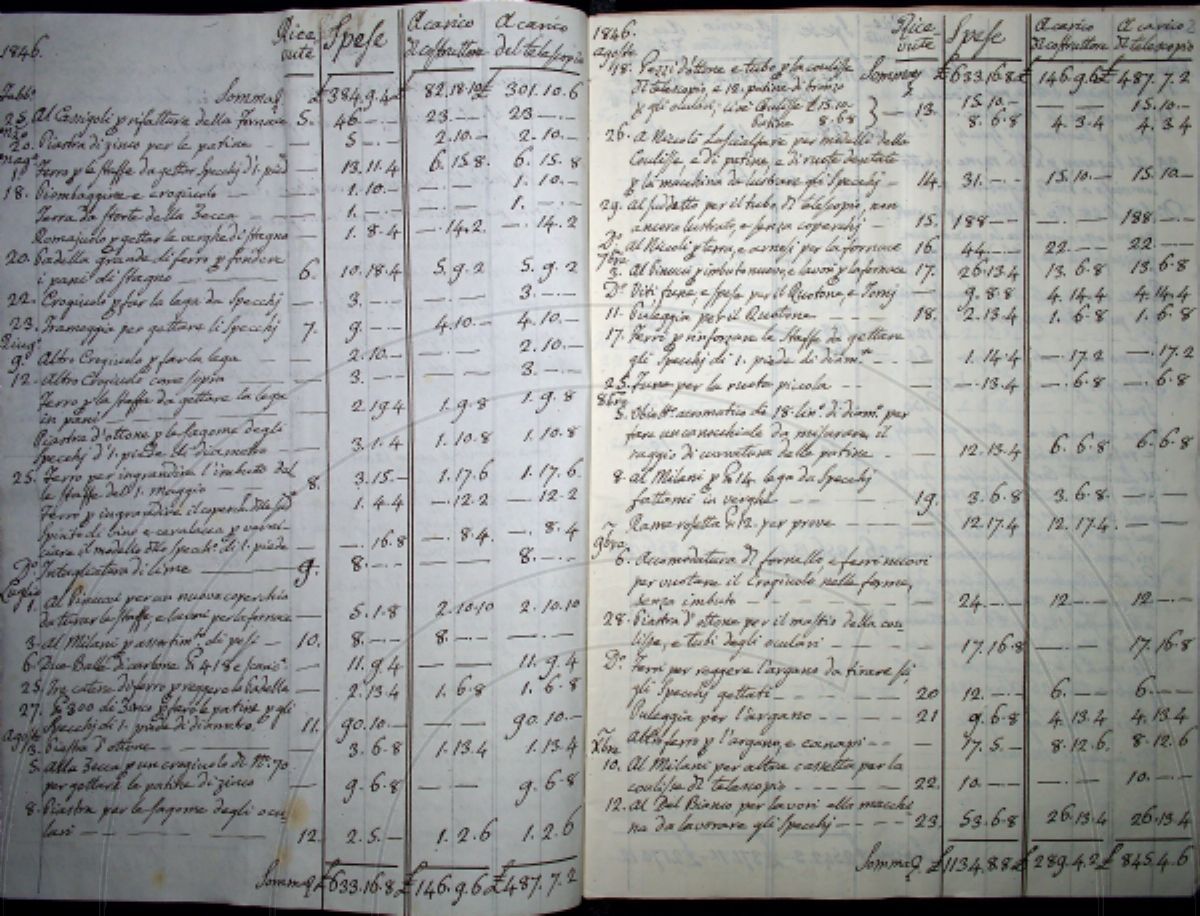 1846.
Rice
vute
Spese
A carico
Di costruttore
A carico
del telescopio
Febb.º Somma £ 384.9.4 £ 82.18.10 £ 301.10.6
25. Al Cessigoli p rifattura della Fornace 5. 46.— 23.— 23—
20. Piastra di zinco per le patine — 5— 2.10.— 2.10.—
Mag.º
1º Ferro p le staffe da gettar Specchj d'1. piede — 13.11.4 6.15.8 6.15.8
18. Piombaggine e crogiuolo — 1.10.— —.— 1.10.—
Terra da storte della Zecca — 1.— —.— 1.—
Romajuolo p gettar le verghe di stagno — 1.8.4 —.14.2 —.14.2
20. Padella grande di ferro p fondere
i pani di stagno — 6. 10.18.4 5.9.2 5.9.2
22. Crogiuolo p far la lega da Specchj — 3.— — 3.—
23. Tramoggia per gettare li Specchj 7. 9.— 4.10.— 4.10.—
Giug.º
9. Altro Crogiuolo p far la lega — 2.10.— —.— 2.10.—
12. Altro Crogiuolo come sopra — 3.— —.— 3.—
Ferro p la staffa da gettare la lega
in pani — 2.19.4 1.9.8 1.9.8
Piastra d'ottone p le sagome degli
Specchj d'1. piede di diametro — 3.1.4 1.10.8 1.10.8
25. Ferro per ingrandire l'imbuto del
le staffe dell'1. maggio — 8. 3.15.— 1.17.6 1.17.6
Ferro p ingrandire il coperch. — 1.4.4 —.12.2 —.12.2
Spirito di vino e ceralacca p verni-
ciare il modello dello Specch. di 1. piede — —.16.8 —.8.4 —.8.4
Dº Intagliatura di lime — 9. 8.— —.— 8.—
Luglio
1. Al Pinucci per un nuovo coperchio
da tirar le staffe, e lavori per la fornace — 5.1.8 2.10.10 2.10.10
3. Al Milani p assortim.to di pesi — 10. 8.— 8.— —.—
6. Due Balle di carbone — 11.9.4 — — 11.9.4
25. Tre catene di ferro p reggere la Padella — 2.13.4 1.6.8 1.6.8
27. 300 di Zinco p fare le patine p gli
Specchj di 1. piede di diametro. 11. 90.10.— —.— 90.10.—
Agosto
Piastra d'ottone — 3.6.8 1.13.4 1.13.4
5. Alla Zecca p un crogiuolo di N.º 70
per gettare le patine di zinco — 9.6.8 —.— 9.6.8
8. Piastra per le sagome degli ocu
lari — 12. 2.5.— 1.2.6 1.2.6
Somma £ 633.16.8 £ 146.9.6 £ 487.7.2
1846.
Rice
vute
Spese
A carico
Di costruttore
A carico
Di telescopio
agosto Somma £ 633.16.8 £ 146.9.6 £ 487.7.2
18. Pezzi d'ottone e tubo p la coulisse
Di telescopio, e 12. patine di bronzo
p gli oculari, cioè Coulisse £ 15.10.— 13. 15.10.— — 15.10.—
Patine 8.6.8 8.6.8 4.3.4 4.3.4
26. A Niccolò per modello della
Coulisse, e di patine, e di ruote dentate
p la macchina da lustrare gli Specchj — 14. 31.— 15.10— 15.10—
29. Al suddetto per il tubo Di telescopio, non
ancora lustrato, e senza coperchj — 15. 188— —.— 188.—
Dº Al Niccoli p terra, e arnesi per la fornace 16. 44.— 22.— 22.—
7bre
3. Al Pinucci p imbuto nuovo, e lavori p la fornace 17. 26.13.4 13.6.8 13.6.8
Dº Viti, fune, e spese per il Rotone, e Tornj — 9.8.8 4.14.4 4.14.4
11. Puleggia per il Rotone — 18. 2.13.4 1.6.8 1.6.8
17. Ferro p rinforzare la Staffa da gettare
gli Specchj di 1. piede di diam.º — 1.14.4 —.17.2 —.17.2
25. Fune per la ruota piccola — —.13.4 —.6.8 —.6.8
8bre
5. Obiett.º acromatico di 18. lin.e di diam.º per
fare un canocchiale da misurare il
raggio di curvatura delle patine — 12.13.4 6.6.8 6.6.8
8. Al Milani p 14. lega da Specchj
fattami in verghe — 19. 3.6.8 3.6.8 —.—
Rame rosetta 12. per prove — 12.17.4 12.17.4 —.—
9bre
6. Accomodatura Di fornello, e ferri nuovi
per vuotare il Crogiuolo nelle forme,
senza imbuto — 24.— 12— 12—
28. Piastra d'ottone per il mastio della cou-
lisse, e tubi degli oculari — 17.16.8 —.— 17.16.8
Dº Ferri per reggere l'argano da tirare sù
gli Specchj gettati — 20 12.— 6.— 6.—
Puleggia per l'argano — 21 9.6.8 4.13.4 4.13.4
Altro ferro p l'argano, e canapi — — 17.5.— 8.12.6 8.12.6
Xbre
10. Al Milani per altra cassetta per la
coulisse Di telescopio — 22. 10.— —.— 10.—
12. Al Del Bianco per lavori alla macchi
na da lavorare gli Specchj — 23. 53.6.8 26.13.4 26.13.4
Somma £ 1134.8.8 £ 289.4.2 £ 845.4.6